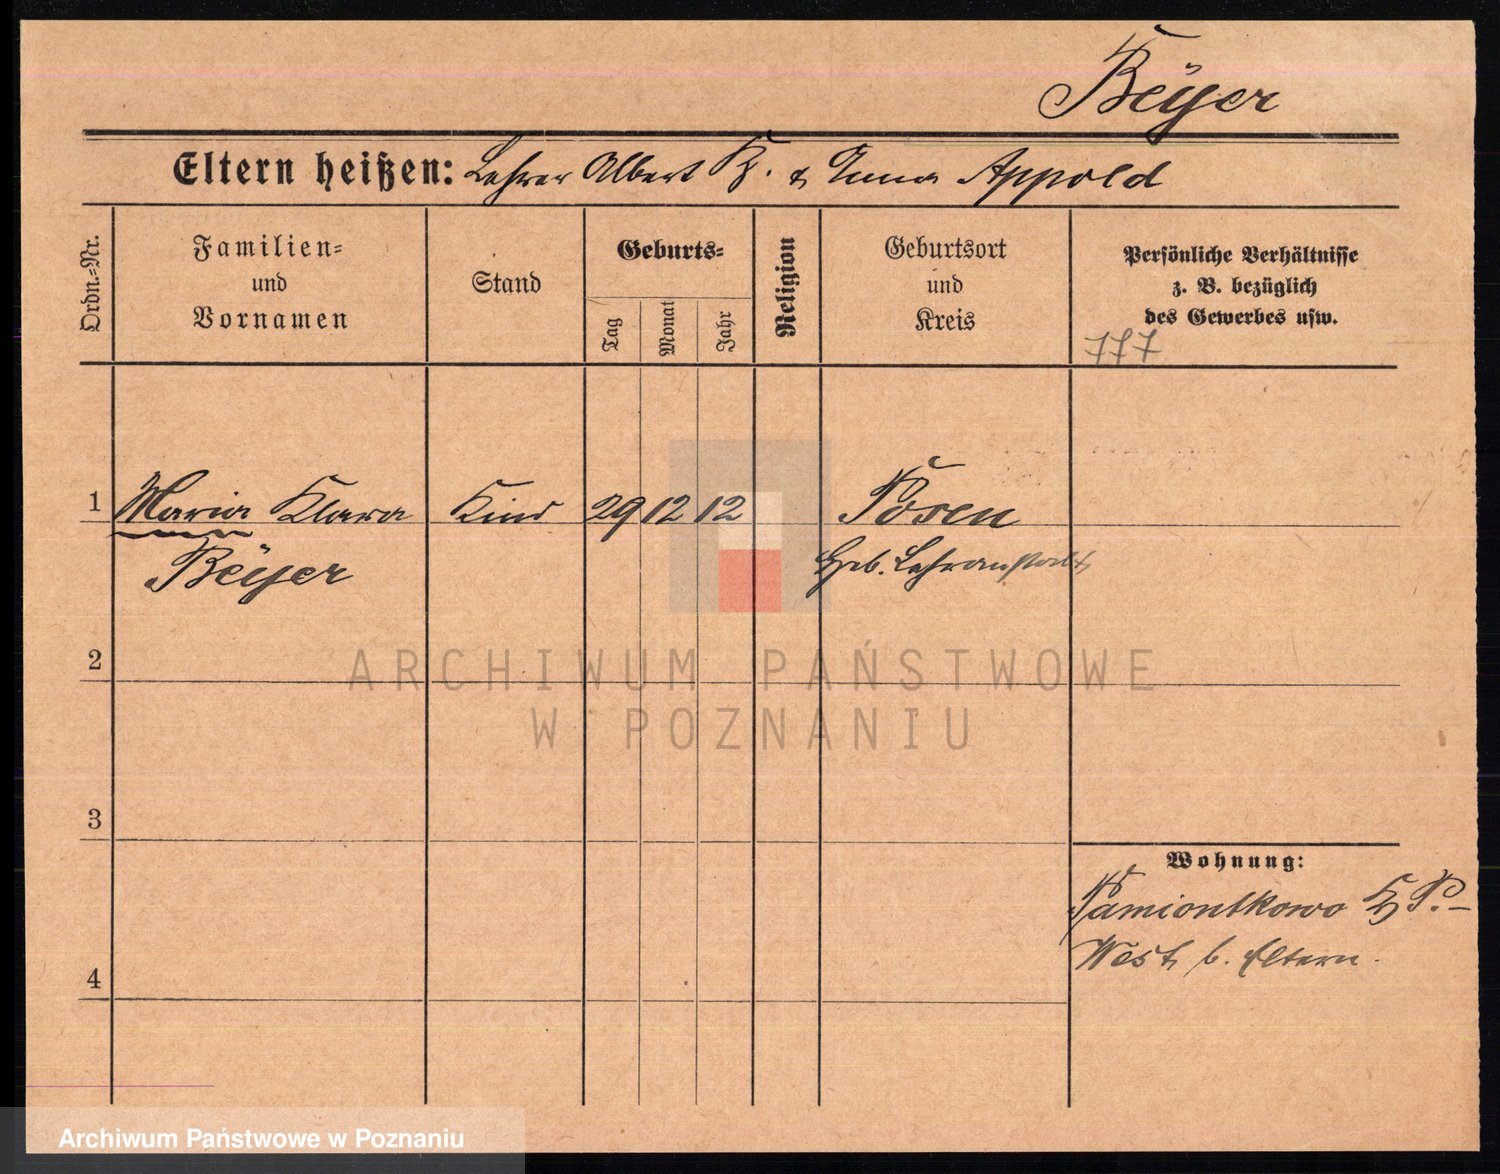 Beÿer
Eltern heißen: Lehrer Albert B. & Anna Appold
Ordn.=Nr.
Familien=
und
Vornamen
Stand
Geburts=
Tag
Monat
Jahr
Religion
Geburtsort
und
Kreis
Persönliche Verhältnisse
z. B. bezüglich
des Gewerbes usw.
777
1 Maria Klara Kind 29 12 12 Posen
Beÿer Heb. Lehranstalt
2
ARCHIWUM PAŃSTWOWE
W POZNANIU
3
Wohnung:
Pamiontkowo Kr P.-
West b. Eltern.
4
Archiwum Państwowe w Poznaniu